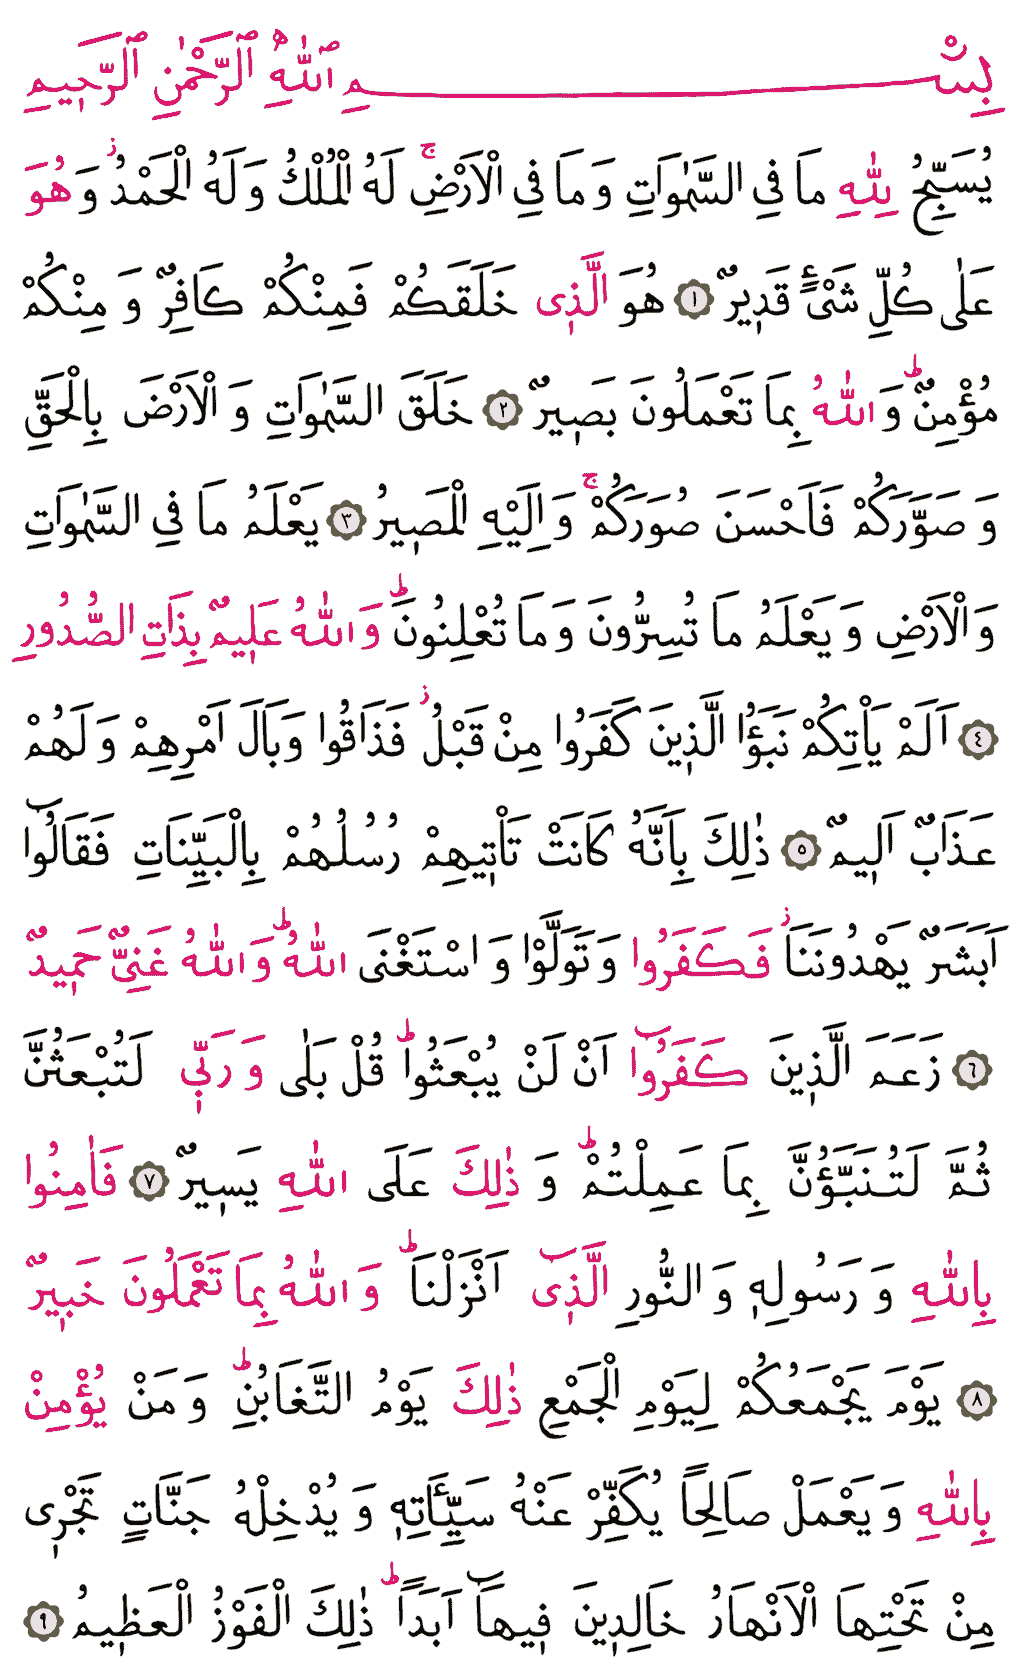 بِسْمِ ٱللّٰهِ ٱلرَّحْمٰنِ ٱلرَّح۪يمِ
يُسَبِّحُ لِلّٰهِ مَا فِي السَّمٰوَاتِ وَ مَا فِي الْاَرْضِۚ لَهُ الْمُلْكُ وَ لَهُ الْحَمْدُۘ وَ هُوَ
عَلٰى كُلِّ شَيْءٍ قَد۪يرٌ ﴿١﴾ هُوَ الَّذ۪ى خَلَقَكُمْ فَمِنْكُمْ كَافِرٌ وَ مِنْكُمْ
مُؤْمِنٌۜ وَ اللّٰهُ بِمَا تَعْمَلُونَ بَص۪يرٌ ﴿٢﴾ خَلَقَ السَّمٰوَاتِ وَ الْاَرْضَ بِالْحَقِّ
وَ صَوَّرَكُمْ فَاَحْسَنَ صُوَرَكُمْۚ وَ اِلَيْهِ الْمَص۪يرُ ﴿٣﴾ يَعْلَمُ مَا فِي السَّمٰوَاتِ
وَ الْاَرْضِ وَ يَعْلَمُ مَا تُسِرُّونَ وَ مَا تُعْلِنُونَۜ وَ اللّٰهُ عَل۪يمٌ بِذَاتِ الصُّدُورِ
﴿٤﴾ اَلَمْ يَاْتِكُمْ نَبَؤُا الَّذ۪ينَ كَفَرُوا مِنْ قَبْلُۘ فَذَاقُوا وَبَالَ اَمْرِهِمْ وَ لَهُمْ
عَذَابٌ اَل۪يمٌ ﴿٥﴾ ذٰلِكَ بِاَنَّهُ كَانَتْ تَاْت۪يهِمْ رُسُلُهُمْ بِالْبَيِّنَاتِ فَقَالُٓوا
اَبَشَرٌ يَهْدُونَنَاۘ فَكَفَرُوا وَ تَوَلَّوْا وَ اسْتَغْنَى اللّٰهُۜ وَ اللّٰهُ غَنِيٌّ حَم۪يدٌ
﴿٦﴾ زَعَمَ الَّذ۪ينَ كَفَرُٓوا اَنْ لَنْ يُبْعَثُواۜ قُلْ بَلٰى وَ رَبّ۪ي لَتُبْعَثُنَّ
ثُمَّ لَتُنَبَّؤُنَّ بِمَا عَمِلْتُمْۜ وَ ذٰلِكَ عَلَى اللّٰهِ يَس۪يرٌ ﴿٧﴾ فَاٰمِنُوا
بِاللّٰهِ وَ رَسُولِه۪ وَ النُّورِ الَّذ۪ٓى اَنْزَلْنَاۜ وَ اللّٰهُ بِمَا تَعْمَلُونَ خَب۪يرٌ
﴿٨﴾ يَوْمَ يَجْمَعُكُمْ لِيَوْمِ الْجَمْعِ ذٰلِكَ يَوْمُ التَّغَابُنِۜ وَ مَنْ يُؤْمِنْ
بِاللّٰهِ وَ يَعْمَلْ صَالِحًا يُكَفِّرْ عَنْهُ سَيِّـَٔاتِه۪ وَ يُدْخِلْهُ جَنَّاتٍ تَجْر۪ى
مِنْ تَحْتِهَا الْاَنْهَارُ خَالِد۪ينَ ف۪يهَٓا اَبَدًاۜ ذٰلِكَ الْفَوْزُ الْعَظ۪يمُ ﴿٩﴾